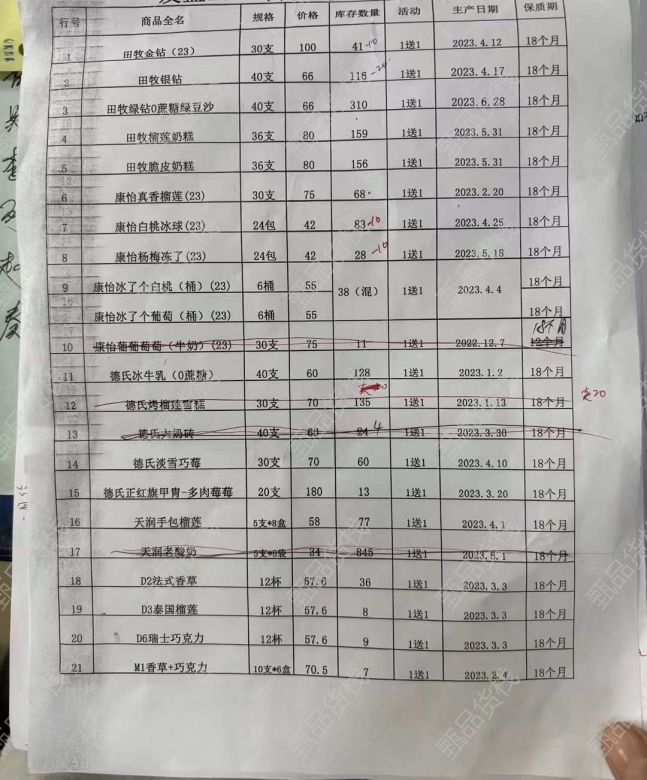 行号 商品全名 规格 价格 库存数量 活动 生产日期 保质期
1 田牧金钻（23） 30支 100 41 -10 1送1 2023.4.12 18个月
2 田牧银钻 40支 66 116 -20 1送1 2023.4.17 18个月
3 田牧绿钻0蔗糖绿豆沙 40支 66 310 1送1 2023.6.28 18个月
4 田牧榴莲奶糕 36支 80 159 1送1 2023.5.31 18个月
5 田牧脆皮奶糕 36支 80 156 1送1 2023.5.31 18个月
6 康怡真香榴莲(23) 30支 75 68 1送1 2023.2.20 18个月
7 康怡白桃冰球(23) 24包 42 83 -10 1送1 2023.4.25 18个月
8 康怡杨梅冻了(23) 24包 42 28 -10 1送1 2023.5.18 18个月
9 康怡冰了个白桃（桶）(23) 6桶 55 38（混） 1送1 2023.4.4 18个月
康怡冰了个葡萄（桶）(23) 6桶 55 18个月
18个月
10 康怡葡葡萄萄（牛奶）(23) 30支 75 11 1送1 2022.12.7 12个月
11 德氏冰牛乳（0蔗糖） 40支 60 128 1送1 2023.1.2 18个月
12 德氏烤榴莲雪糕 30支 70 135 1送1 2023.1.13 18个月 卖20
13 德氏大奶砖 40支 60 24 4 1送1 2023.3.30 18个月
14 德氏淡雪巧莓 30支 70 60 1送1 2023.4.10 18个月
15 德氏正红旗甲胄-多肉莓莓 20支 180 13 1送1 2023.3.20 18个月
16 天润手包榴莲 5支*8盒 58 77 1送1 2023.4.1 18个月
17 天润老酸奶 5支*6袋 34 845 1送1 2023.6.1 18个月
18 D2法式香草 12杯 57.6 36 1送1 2023.3.3 18个月
19 D3泰国榴莲 12杯 57.6 8 1送1 2023.3.3 18个月
20 D6瑞士巧克力 12杯 57.6 9 1送1 2023.3.3 18个月
21 M1香草+巧克力 10支*6盒 70.5 7 1送1 2023.2.4 18个月
甄品货栈